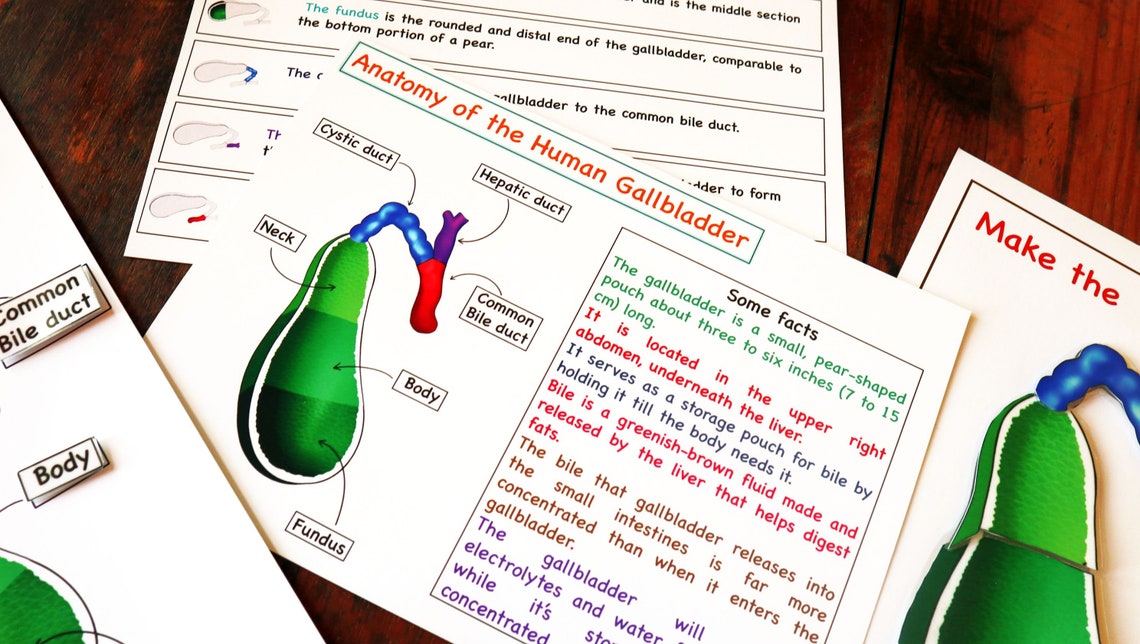 and is the middle section
The fundus is the rounded and distal end of the gallbladder, comparable to
the bottom portion of a pear.
The
gallbladder to the common bile duct.
to form
Anatomy of the Human Gallbladder
Cystic duct
Hepatic duct
Neck
Common
Bile duct
Body
Fundus
Some facts
The gallbladder is a small, pear-shaped
pouch about three to six inches (7 to 15
cm) long.
It is located in the upper right
abdomen, underneath the liver.
It serves as a storage pouch for bile by
holding it till the body needs it.
Bile is a greenish-brown fluid made and
released by the liver that helps digest
fats.
The bile that gallbladder releases into
the small intestines is far more
concentrated than when it enters the
gallbladder.
The gallbladder will
electrolytes and water
while it's
concentrated
Common
Bile duct
Body
Make the